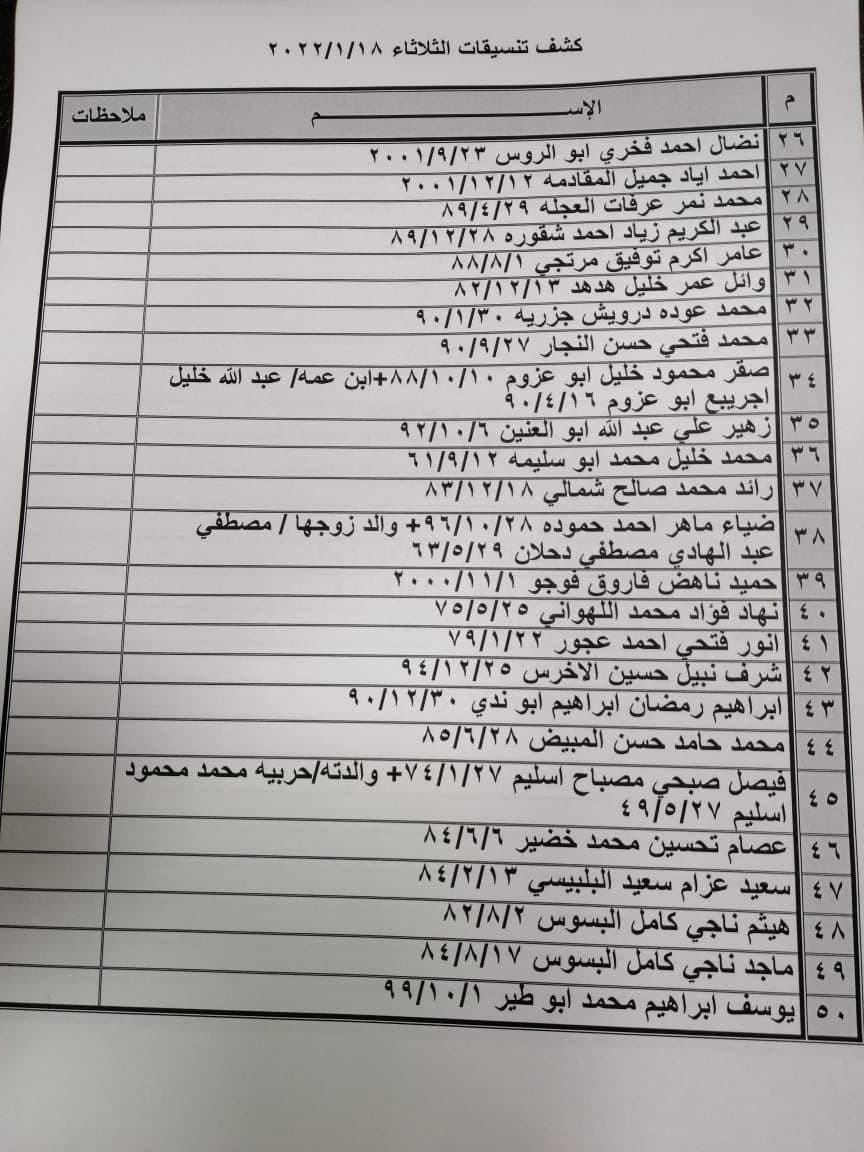 كشف تنسيقات الثلاثاء ٢٠٢٢/١/١٨
م الإســـــــم ملاحظات
٢٦ نضال احمد فخري ابو الروس ٢٠٠١/٩/٢٣
٢٧ احمد اياد جميل المقادمه ٢٠٠١/١٢/١٢
٢٨ محمد نمر عرفات العجله ٨٩/٤/٢٩
٢٩ عبد الكريم زياد احمد شقوره ٨٩/١٢/٢٨
٣٠ عامر اكرم توفيق مرتجي ٨٨/٨/١
٣١ وائل عمر خليل هدهد ٨٢/١٢/١٣
٣٢ محمد عوده درويش جزريه ٩٠/١/٣٠
٣٣ محمد فتحي حسن النجار ٩٠/٩/٢٧
٣٤ صقر محمود خليل ابو عزوم ٨٨/١٠/١٠+ابن عمه/ عبد الله خليل
اجرييع ابو عزوم ٩٠/٤/١٦
٣٥ زهير علي عبد الله ابو العنين ٩٢/١٠/٦
٣٦ محمد خليل محمد ابو سليمه ٦١/٩/١٢
٣٧ رائد محمد صالح شمالي ٨٣/١٢/١٨
٣٨ ضياء ماهر احمد حموده ٩٦/١٠/٢٨+ والد زوجها / مصطفي
عبد الهادي مصطفي دحلان ٦٣/٥/٢٩
٣٩ حميد ناهض فاروق فوجو ٢٠٠٠/١١/١
٤٠ نهاد فؤاد محمد اللهواني ٧٥/٥/٢٥
٤١ انور فتحي احمد عجور ٧٩/١/٢٢
٤٢ شرف نبيل حسين الاخرس ٩٤/١٢/٢٥
٤٣ ابراهيم رمضان ابراهيم ابو ندي ٩٠/١٢/٣٠
٤٤ محمد حامد حسن المبيض ٨٥/٦/٢٨
٤٥ فيصل صبحي مصباح اسليم ٧٤/١/٢٧+ والدته/حربيه محمد محمود
اسليم ٤٩/٥/٢٧
٤٦ عصام تحسين محمد خضير ٨٤/٦/٦
٤٧ سعيد عزام سعيد البلبيسي ٨٤/٢/١٣
٤٨ هيثم ناجي كامل البسوس ٨٢/٨/٢
٤٩ ماجد ناجي كامل البسوس ٨٤/٨/١٧
٥٠ يوسف ابراهيم محمد ابو طير ٩٩/١٠/١